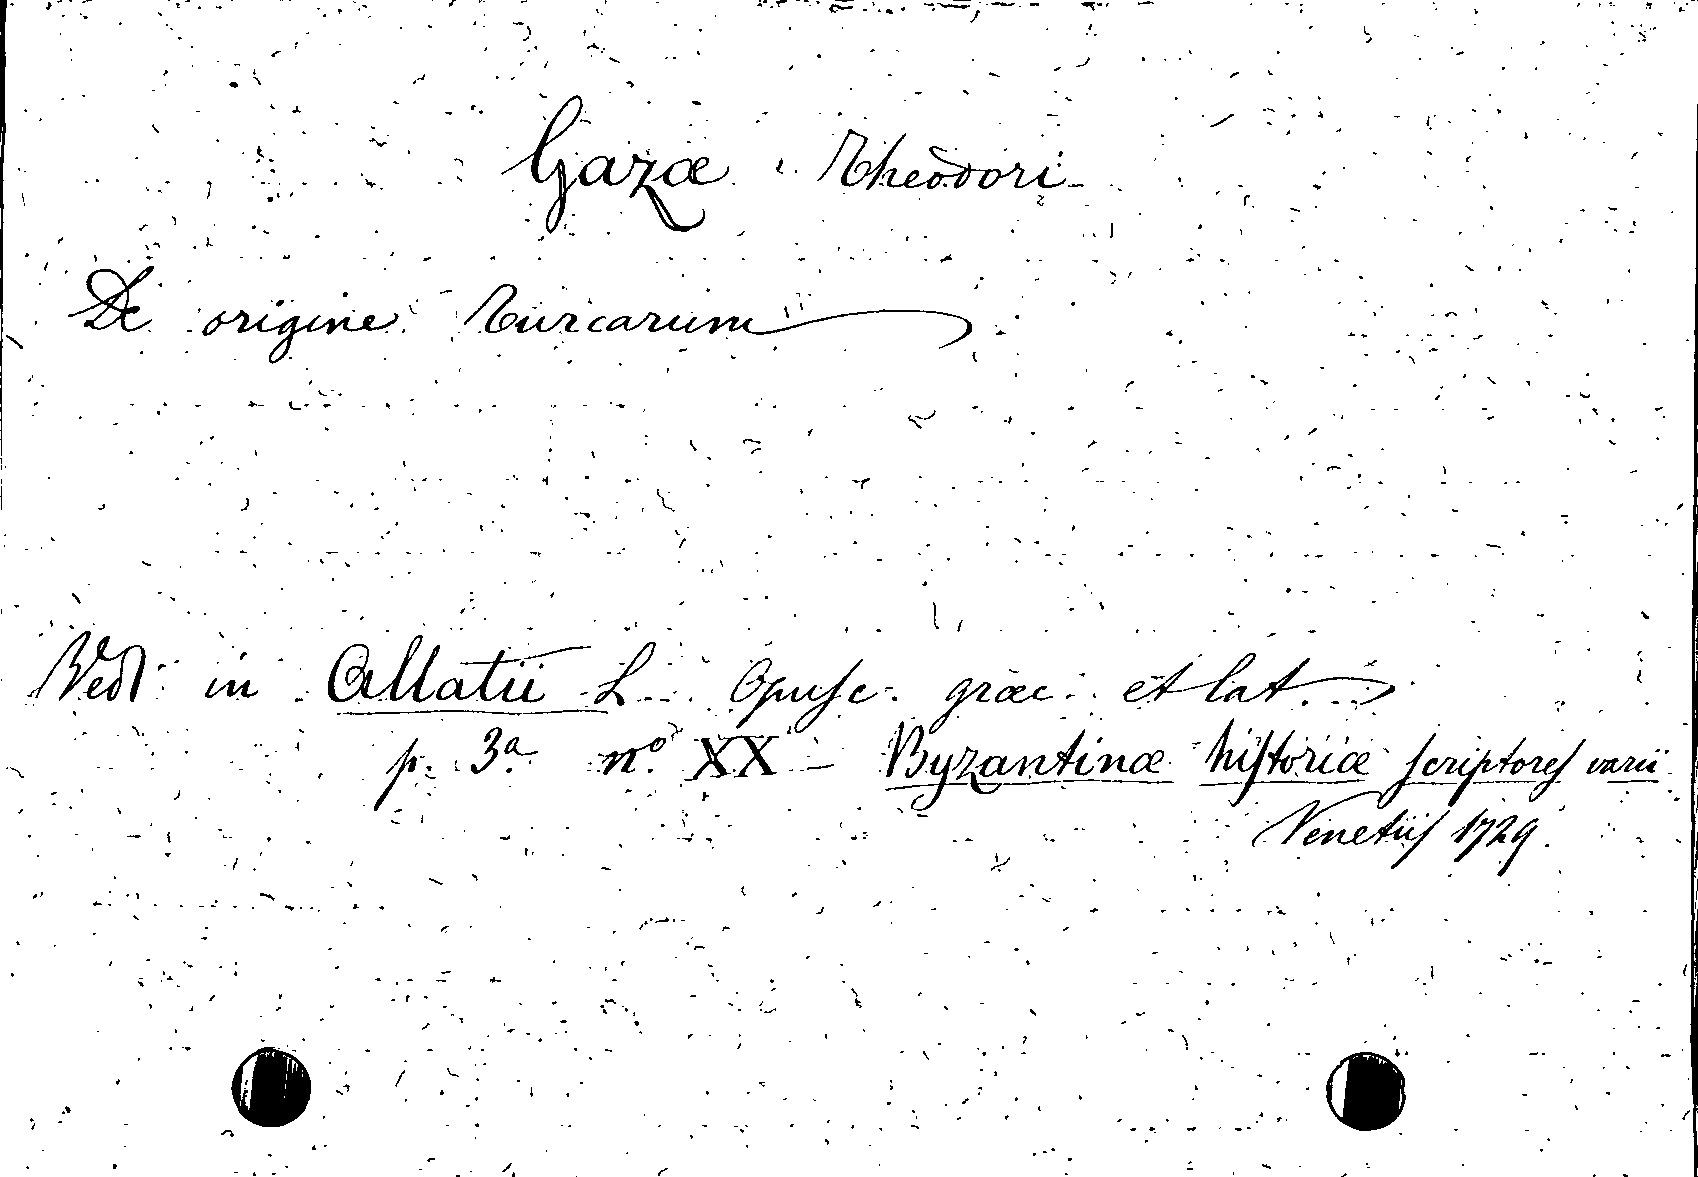 Gazæ Theodori
De origine Turcarum
Vedi in Allatii L. Opusc. græc. et lat.
p. 3ª nº XX – Byzantinæ historiæ scriptores varii
Venetiis 1729.